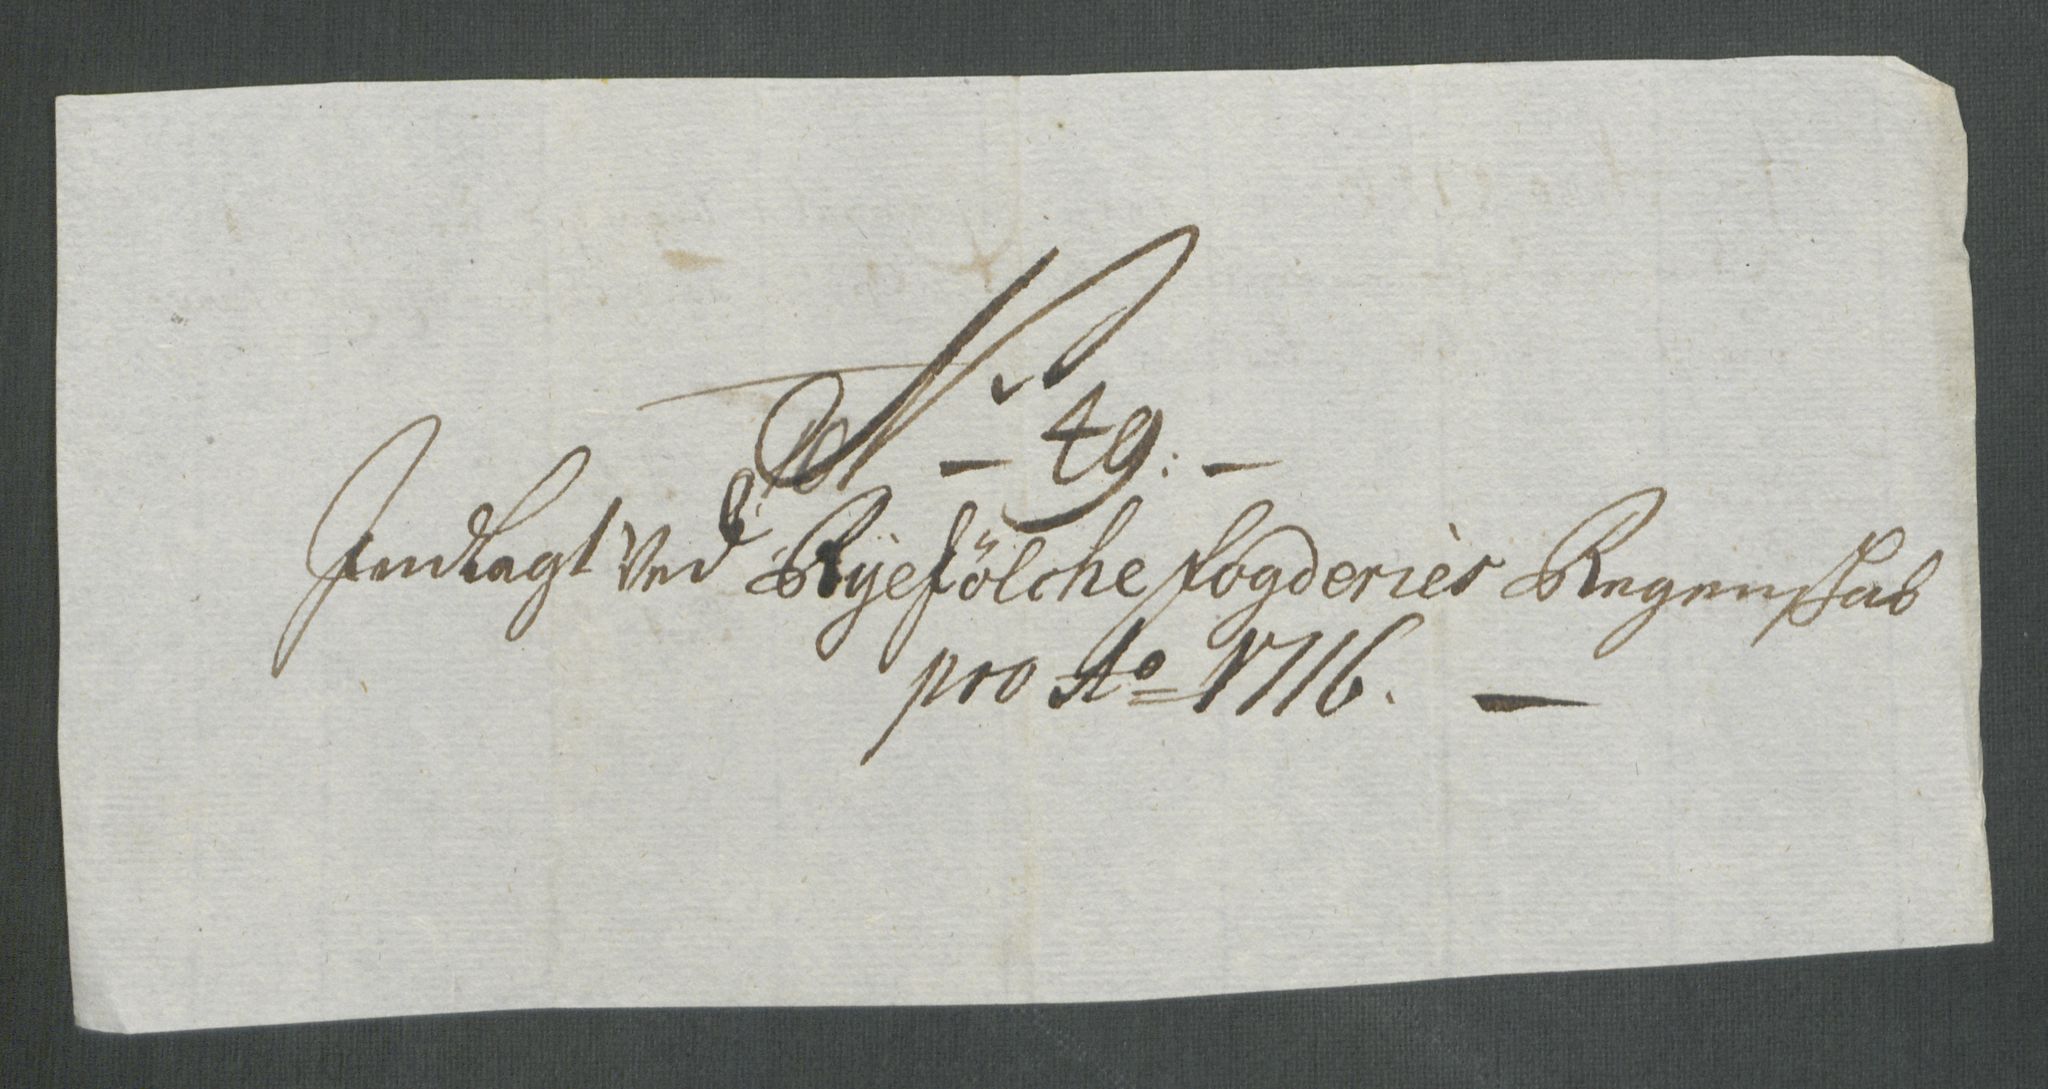 No – 49. –
Indlagt ved Ryefölche fogderies Regenskab
pro Ao = 1716. –